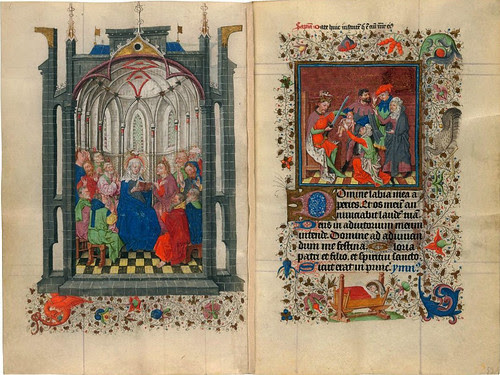 Domine labia mea a
peries. Et os meū an
nunciabit laudē tuā.
Deus in adiutorium meum
intende. Domine ad adiuuan
dum me festina. Gloria
patri et filio. et spiritui sancto
Sicut erat in princ. ymni.